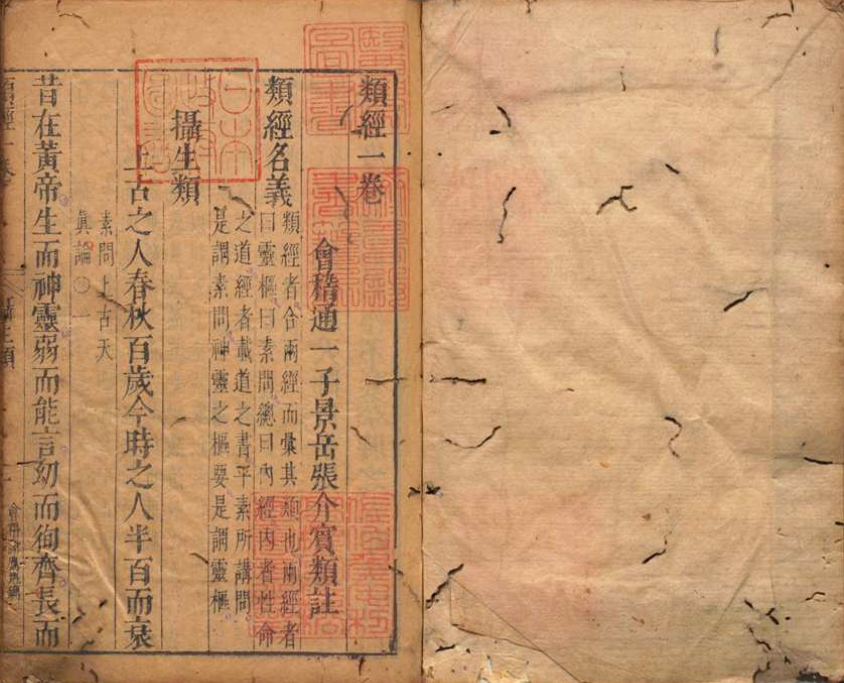 類經一卷
會稽通一子景岳張介賓類註
類經名義
類經者合兩經而彙其類也兩經者
曰靈樞曰素問總曰內經內者性命
之道經者載道之書平素所講問
是謂素問神靈之樞要是謂靈樞
攝生類
上古之人春秋百歲今時之人半百而衰
素問上古天
眞論○一
昔在黃帝生而神靈弱而能言幼而徇齊長而
類經一卷